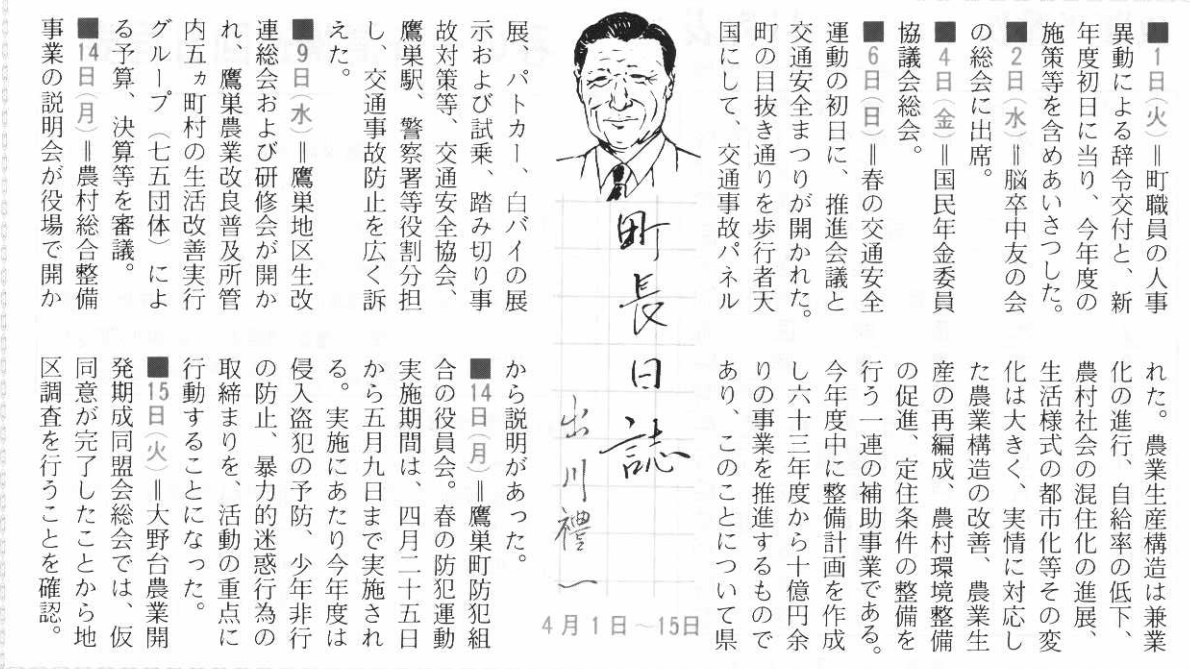 町長日誌
出川禮一
4月1日～15日
■1日(火)＝町職員の人事
異動による辞令交付と、新
年度初日に当り、今年度の
施策等を含めあいさつした。
■2日(水)＝脳卒中友の会
の総会に出席。
■4日(金)＝国民年金委員
協議会総会。
■6日(日)＝春の交通安全
運動の初日に、推進会議と
交通安全まつりが開かれた。
町の目抜き通りを歩行者天
国にして、交通事故パネル
展、パトカー、白バイの展
示および試乗、踏み切り事
故対策等、交通安全協会、
鷹巣駅、警察署等役割分担
し、交通事故防止を広く訴
えた。
■9日(水)＝鷹巣地区生改
連総会および研修会が開か
れ　鷹巣農業改良普及所管
内五ヵ町村の生活改善実行
グループ（七五団体）によ
る予算、決算等を審議。
■14日(月)＝農村総合整備
事業の説明会が役場で開か
れた。農業生産構造は兼業
化の進行、自給率の低下、
農村社会の混住化の進展、
生活様式の都市化等その変
化は大きく、実情に対応し
た農業構造の改善、農業生
産の再編成、農村環境整備
の促進、定住条件の整備を
行う一連の補助事業である。
今年度中に整備計画を作成
し六十三年度から十億円余
りの事業を推進するもので
あり、このことについて県
から説明があった。
■14日(月)＝鷹巣町防犯組
合の役員会。春の防犯運動
実施期間は、四月二十五日
から五月九日まで実施され
る。実施にあたり今年度は
侵入盗犯の予防、少年非行
の防止、暴力的迷惑行為の
取締まりを、活動の重点に
行動することになった。
■15日(火)＝大野台農業開
発期成同盟会総会では、仮
同意が完了したことから地
区調査を行うことを確認。